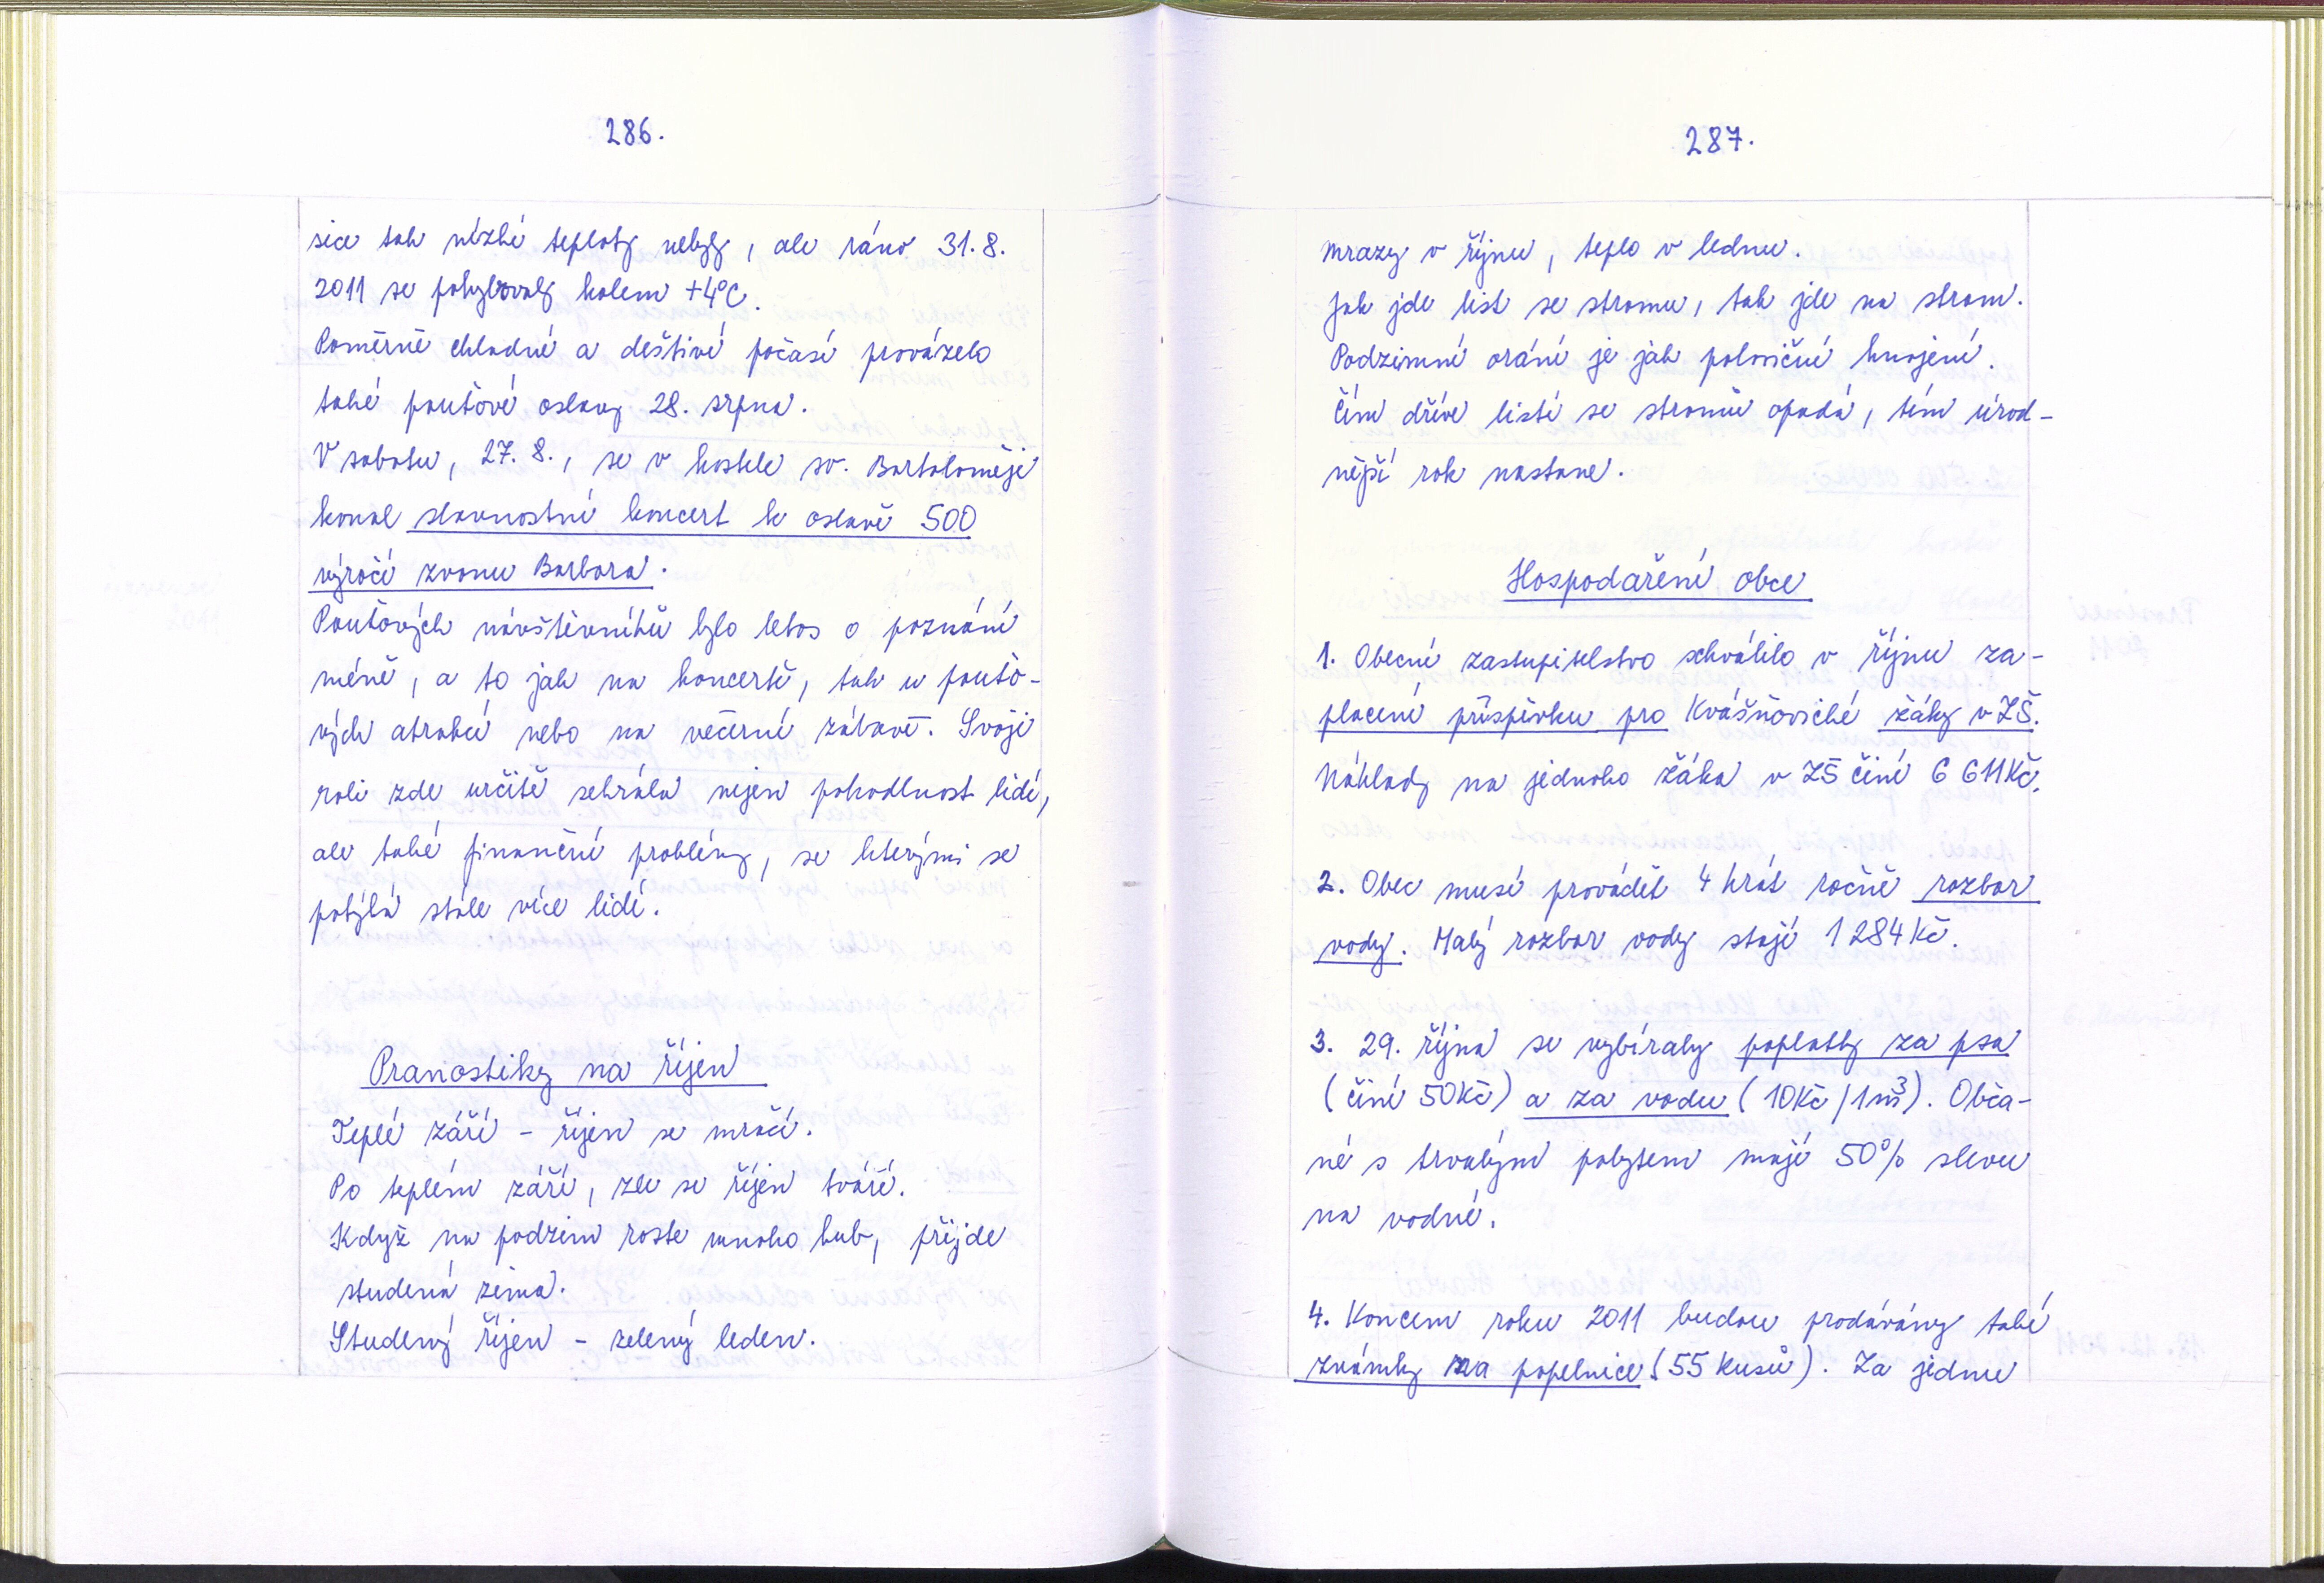 286.
sice tak nízké teploty nebyly, ale ráno 31. 8.
2011 se pohybovaly kolem +4°C.
Poměrně chladné a deštivé počasí provázelo
také pouťové oslavy 28. srpna.
V sobotu, 27. 8., se v kostele sv. Bartoloměje
konal slavnostní koncert k oslavě 500
výročí zvonu Barbora.
Pouťových návštěvníků bylo letos o poznání
méně, a to jak na koncertě, tak u pouťo-
vých atrakcí nebo na večerní zábavě. Svoji
roli zde určitě sehrála nejen pohodlnost lidí,
ale také finanční problémy, se kterými se
potýká stále více lidí.
Pranostiky na říjen
Teplé září - říjen se mračí.
Po teplém září, zle se říjen tváří.
Když na podzim roste mnoho hub, přijde
studená zima.
Studený říjen - zelený leden.
287.
mrazy v říjnu, teplo v lednu.
Jak jde list se stromu, tak jde na strom.
Podzimní orání je jak poloviční hnojení.
Čím dříve listí se stromů opadá, tím úrod-
nější rok nastane.
Hospodaření obce
1. Obecní zastupitelstvo schválilo v říjnu za-
placení příspěvku pro Kvášňovické žáky v ZŠ.
Náklady na jednoho žáka v ZŠ činí 6 611 Kč.
2. Obec musí provádět 4 krát ročně rozbor
vody. Malý rozbor vody stojí 1 284 Kč.
3. 29. října se vybíraly poplatky za psa
(činí 50Kč) a za vodu (10Kč/1m³). Obča-
né s trvalým pobytem mají 50% slevu
na vodné.
4. Koncem roku 2011 budou prodávány také
známky na popelnice (55 kusů). Za jednu